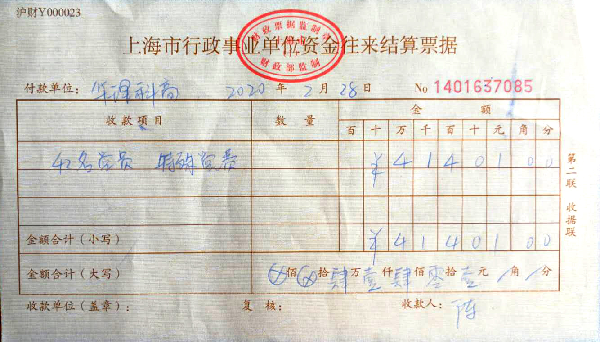 沪财Y000023
上海市行政事业单位资金往来结算票据
财政部监制
付款单位：华泽科商 2020年2月28日 No 1401637085
收款项目 数量 金额
百十万千百十元角分
42名党员 特殊党费 ¥41401.00
金额合计（小写） ¥41401.00
金额合计（大写） ⊗佰⊗拾肆万壹仟肆佰零拾壹元/角/分
收款单位（盖章）： 复核： 收款人：陈
第二联 收据联